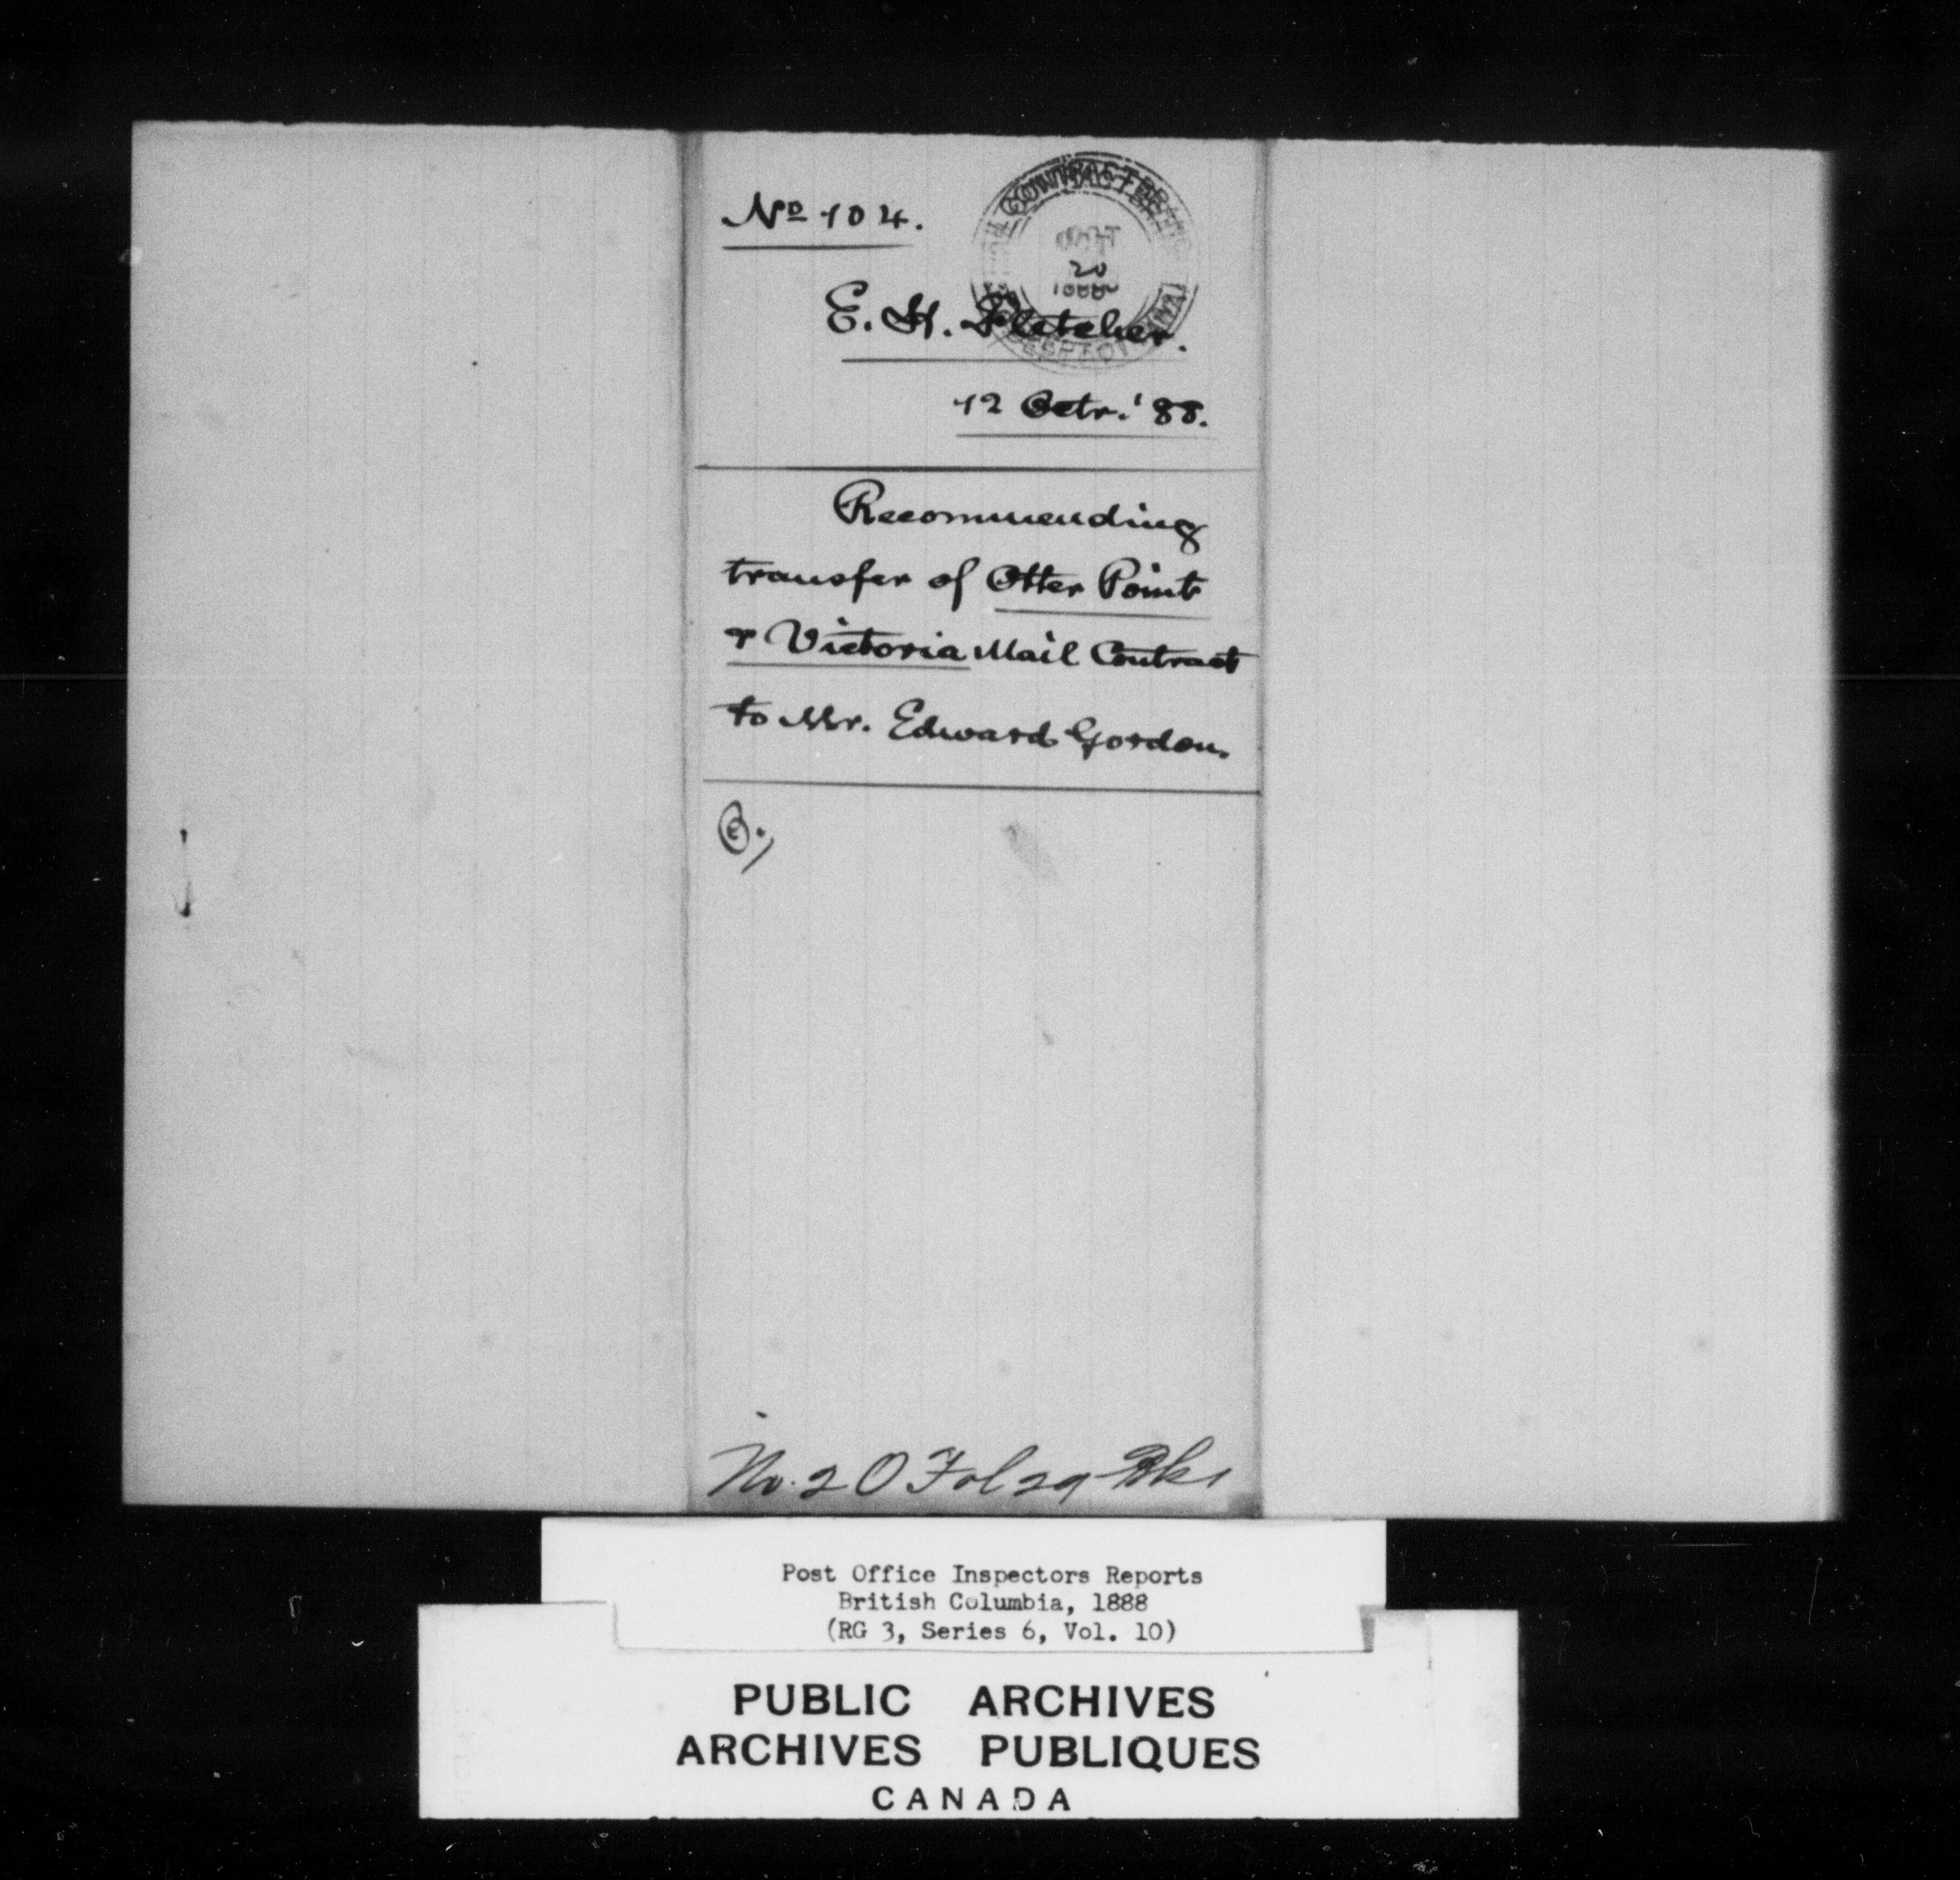 No 104.
OCT
20
1888
E. H. Fletcher.
12 Octr. '88.
Recommending
transfer of Otter Point
& Victoria Mail Contract
to Mr. Edward Gordon.
No. 20 Fol 29
Post Office Inspectors Reports
British Columbia, 1888
(RG 3, Series 6, Vol. 10)
PUBLIC ARCHIVES
ARCHIVES PUBLIQUES
CANADA